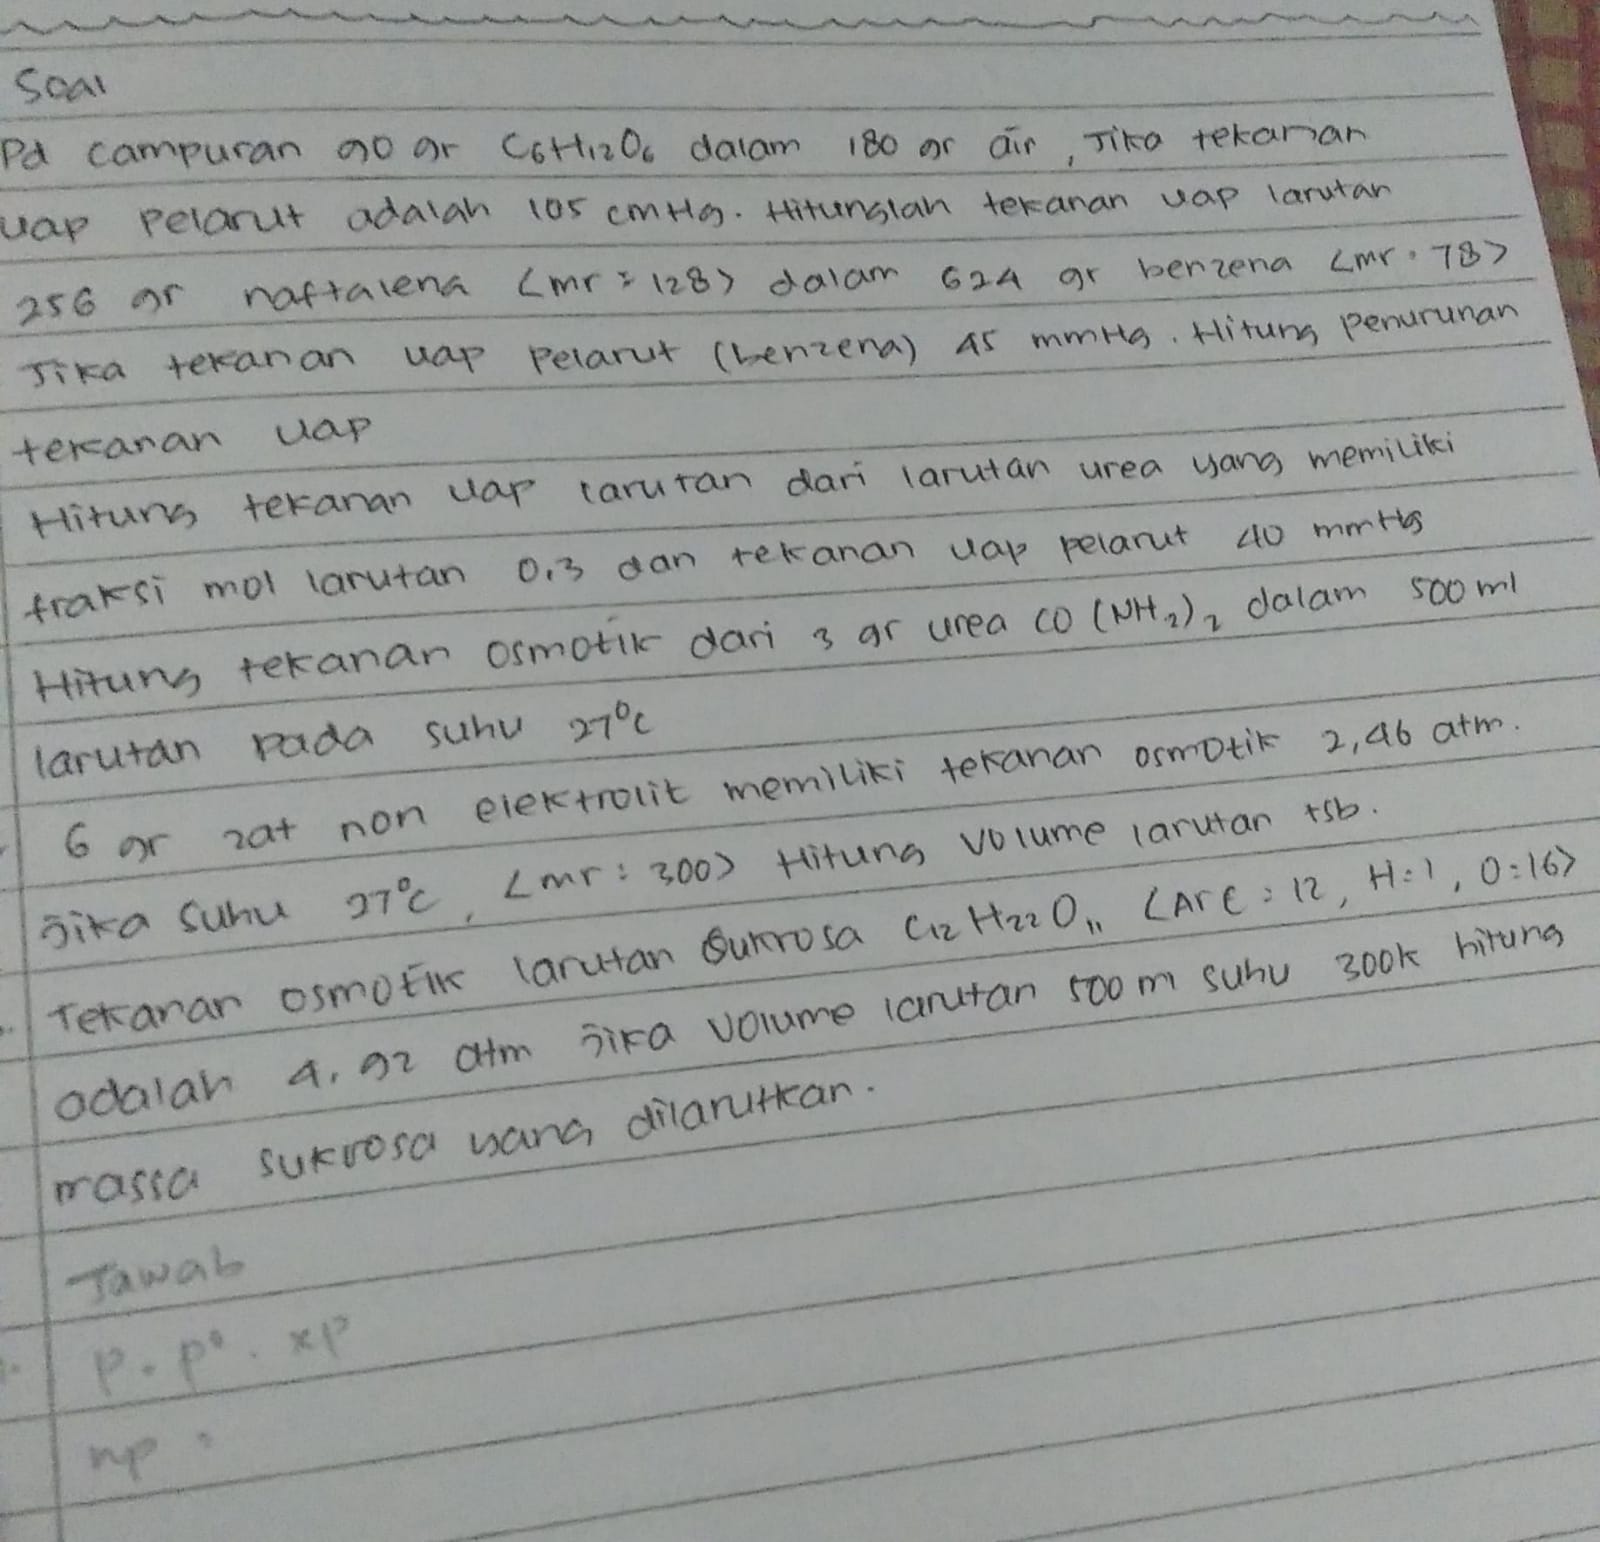 Soal
Pd campuran 90 gr C6H12O6 dalam 180 gr air, Jika tekanan
uap pelarut adalah 105 cmHg. Hitunglah tekanan uap larutan
256 gr naftalena <mr = 128> dalam 624 gr benzena <mr = 78>
Jika tekanan uap pelarut (benzena) 45 mmHg. Hitung penurunan
tekanan uap
Hitung tekanan uap larutan dari larutan urea yang memiliki
fraksi mol larutan 0,3 dan tekanan uap pelarut 40 mmHg
Hitung tekanan osmotik dari 3 gr urea CO(NH2)2 dalam 500 ml
larutan pada suhu 27°C
6 gr zat non elektrolit memiliki tekanan osmotik 2,46 atm.
Jika suhu 27°C, <mr : 300> Hitung volume larutan tsb.
Tekanan osmotik larutan Sukrosa C12H22O11 <Ar C : 12, H : 1, O : 16>
adalah 4,92 atm Jika volume larutan 500 m suhu 300k hitung
massa sukrosa yang dilarutkan.
Jawab
P = P° . xp
np =